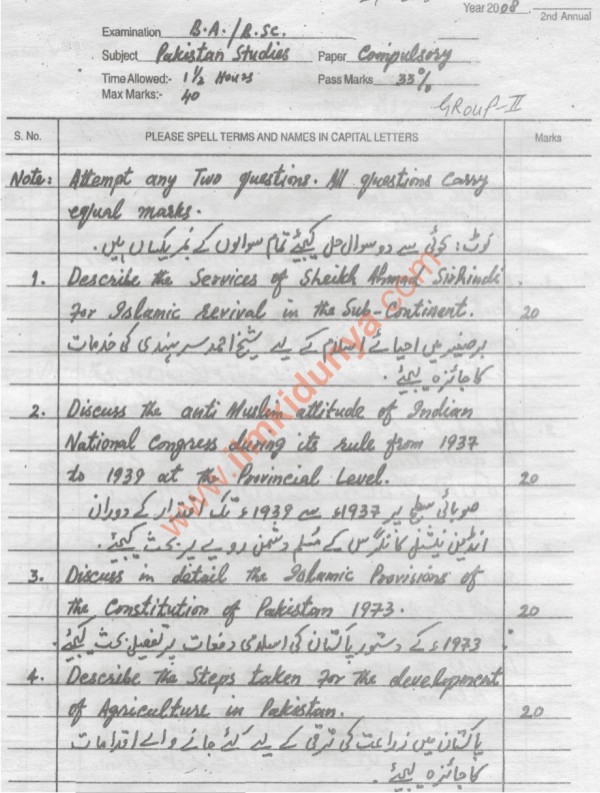 Year 2008, 2nd Annual
Examination B.A./B.Sc.
Subject Pakistan Studies Paper Compulsory
Time Allowed:- 1½ Hours Pass Marks 33%
Max Marks:- 40
GROUP-II
S. No. PLEASE SPELL TERMS AND NAMES IN CAPITAL LETTERS Marks
Note: Attempt any Two questions. All questions carry
equal marks.
نوٹ: کوئی سے دو سوال حل کیجئے تمام سوالوں کے نمبر یکساں ہیں.
1. Describe the Services of Sheikh Ahmad Sirhindi
For Islamic revival in the Sub-Continent. 20
برصغیر میں احیائے اسلام کے لیے شیخ احمد سرہندی کی خدمات
کا جائزہ لیجئے.
2. Discuss the anti Muslim attitude of Indian
National Congress during its rule from 1937
to 1939 at the Provincial Level. 20
صوبائی سطح پر 1937ء سے 1939ء تک اقتدار کے دوران
انڈین نیشنل کانگرس کے مسلم دشمن رویے پر بحث کیجئے.
3. Discuss in detail the Islamic Provisions of
the Constitution of Pakistan 1973. 20
1973ء کے دستور پاکستان کی اسلامی دفعات پر تفصیلی بحث کیجئے.
4. Describe the Steps taken For the development
of Agriculture in Pakistan. 20
پاکستان میں زراعت کی ترقی کے لیے کئے جانے والے اقدامات
کا جائزہ لیجئے.
www.ilmkidunya.com